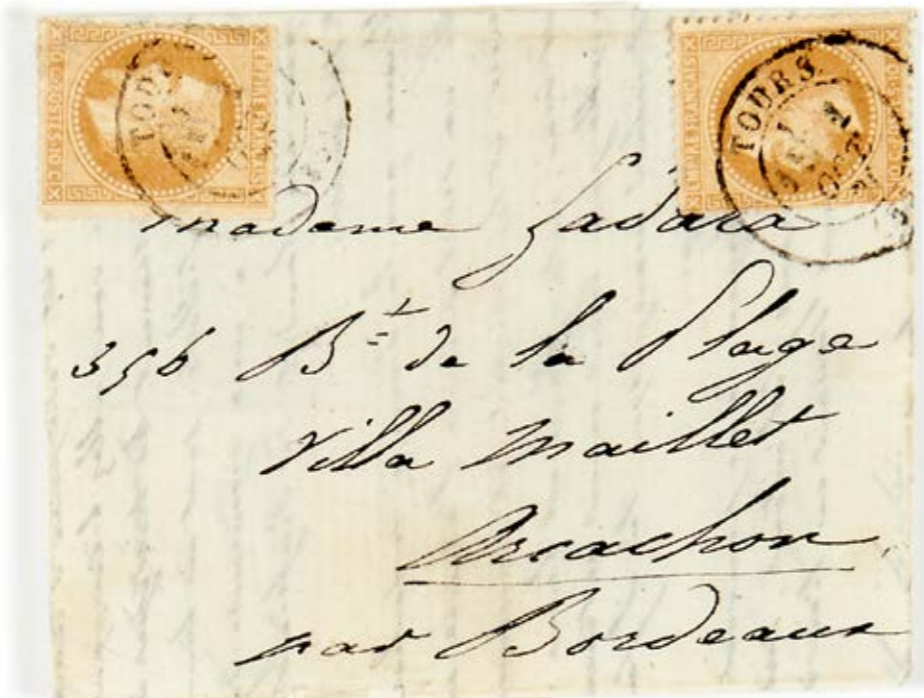 EMPIRE FRANÇAIS
TOURS
EMPIRE FRANÇAIS
TOURS
OCT.
Madame
356 Bt de la Plage
Villa Maillet
Arcachon
par Bordeaux